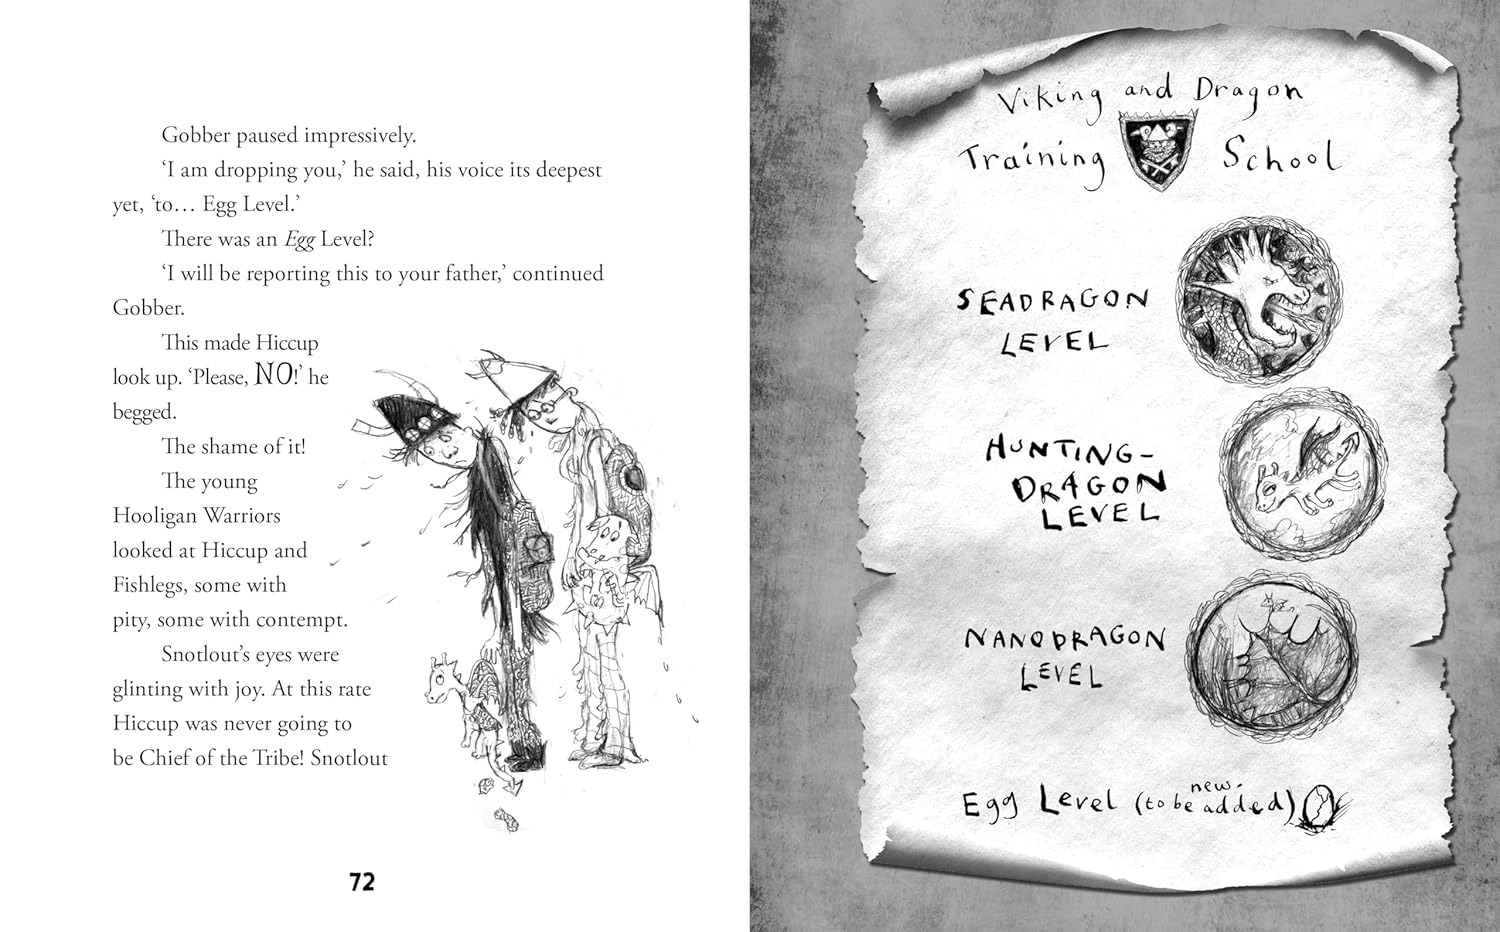 Gobber paused impressively.
‘I am dropping you,’ he said, his voice its deepest
yet, ‘to… Egg Level.’
There was an Egg Level?
‘I will be reporting this to your father,’ continued
Gobber.
This made Hiccup
look up. ‘Please, NO!’ he
begged.
The shame of it!
The young
Hooligan Warriors
looked at Hiccup and
Fishlegs, some with
pity, some with contempt.
Snotlout’s eyes were
glinting with joy. At this rate
Hiccup was never going to
be Chief of the Tribe! Snotlout
72
Viking and Dragon
Training School
SEADRAGON
LEVEL
HUNTING-
DRAGON
LEVEL
NANODRAGON
LEVEL
new.
Egg Level (to be added)